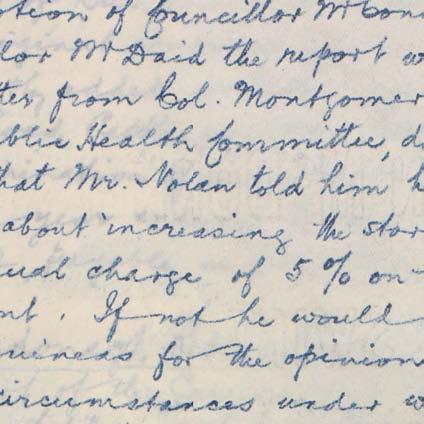 otion of Councillor McCon
llor McDaid the report w
tter from Col. Montgomer
ublic Health Committee, d
that Mr. Nolan told him h
about increasing the stor
ual charge of 5% on
nt. If not he would
uineas for the opinion
circumstances under w